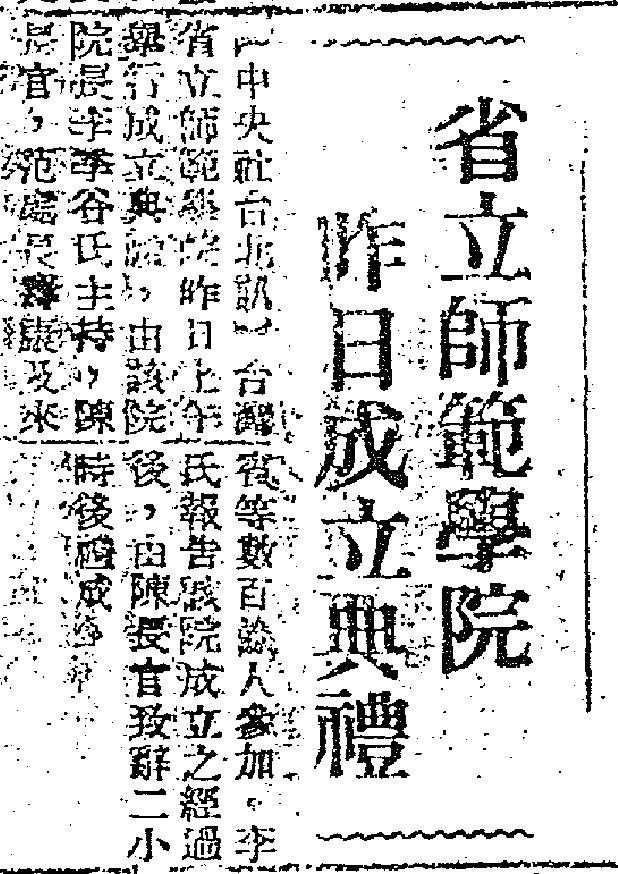 省立師範學院
昨日成立典禮
﹝中央社台北訊﹞台灣
省立師範學院昨日上午
舉行成立典禮，由該院
院長李季谷氏主持，陳
長官，范處長壽康及來
賓等數百餘人參加。李
氏報告該院成立之經過
後，由陳長官致辭二小
時後禮成